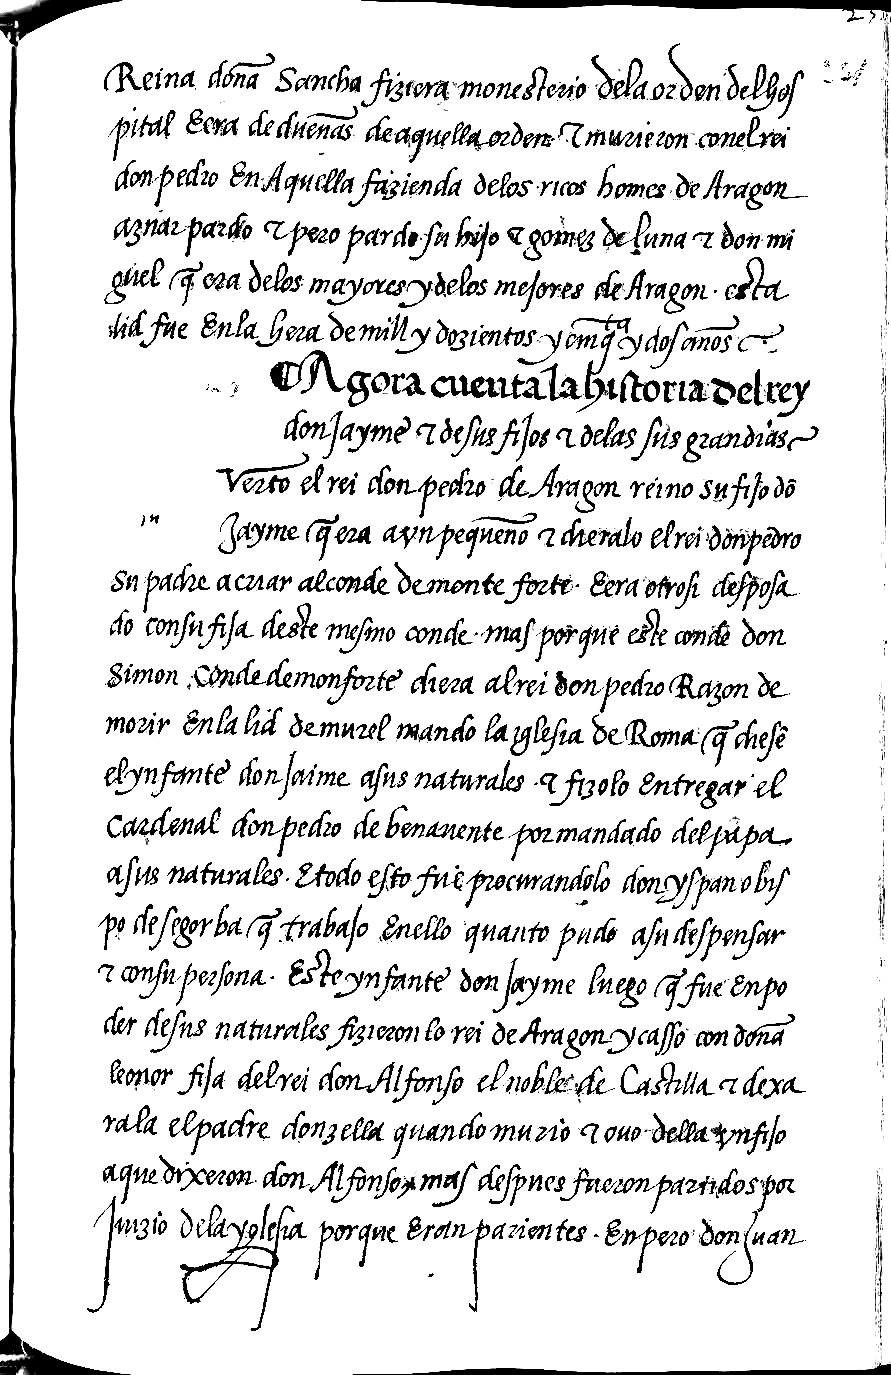 Reina doña Sancha fiziera monesterio dela orden delhos
pital Eera de dueñas de aquella orden τ murieron conel rei
don pedro En Aquella fazienda delos ricos homes de Aragon
aznar pardo τ pero pardo su hijo τ gomez de luna τ don mi
guel q̃ era delos mayores y delos mejores de Aragon. esta
lid fue Enla hera de mill y dozientos y cinq̃ta y dos años
Agora cuenta la historia del rey
don Jayme τ de sus fijos τ delas sus grandias
Verto el rei don pedro de Aragon reino su fijo dõ
Jayme q̃ era aun pequeño τ dieralo el rei don pedro
Su padre a criar al conde de monte forte. Eera otrosi desposa
do con su fija deste mesmo conde. mas porque este conde don
Simon Conde de monforte diera al rei don pedro Razon de
morir Enla lid de murel mando la iglesia de Roma q̃ diesẽ
el ynfante don Jaime asus naturales. τ fizolo Entregar el
Cardenal don pedro de benauente por mandado del papa
asus naturales. E todo esto fue procurandolo don yspan obis
po de segorba q̃ trabajo Enello quanto pudo asu despensar
τ con su persona. Este ynfante don Jayme luego q̃ fue Enpo
der de sus naturales fizieron lo rei de Aragon y casso con doña
leonor fija del rei don Alfonso el noble de Castilla τ dexa
rala el padre donzella quando murio τ ouo della un fijo
aque dixeron don Alfonso, mas despues fueron partidos por
Juizio dela yglesia porque Eran parientes. Enpero don Juan